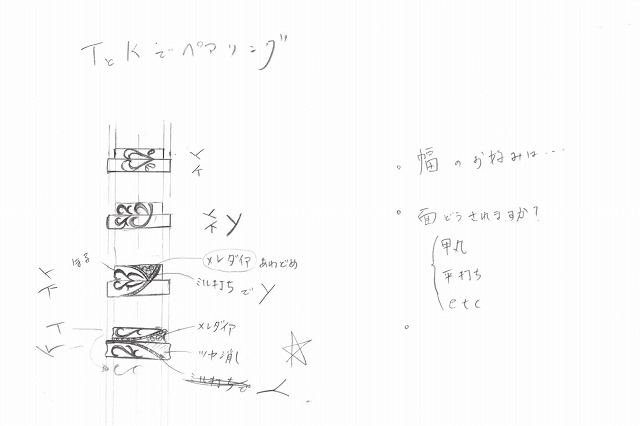 TとKでペアリング
幅のお好みは…
面どうされますか?
甲丸
平打ち
etc
Y
ほる
メレダイア あわどめ
ミル打ちでY
T
メレダイア
ツヤ消し
ミル打ちで